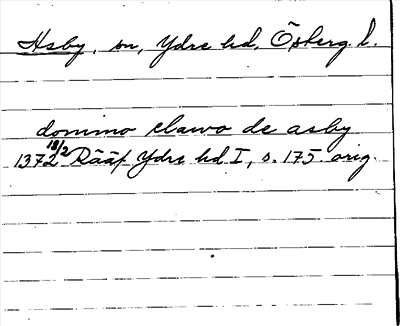 Asby, sn, Ydre hd, Östberg. l.
domino clawo de asby
1372 18/2 Rääf Ydre hd I, s. 175. orig.